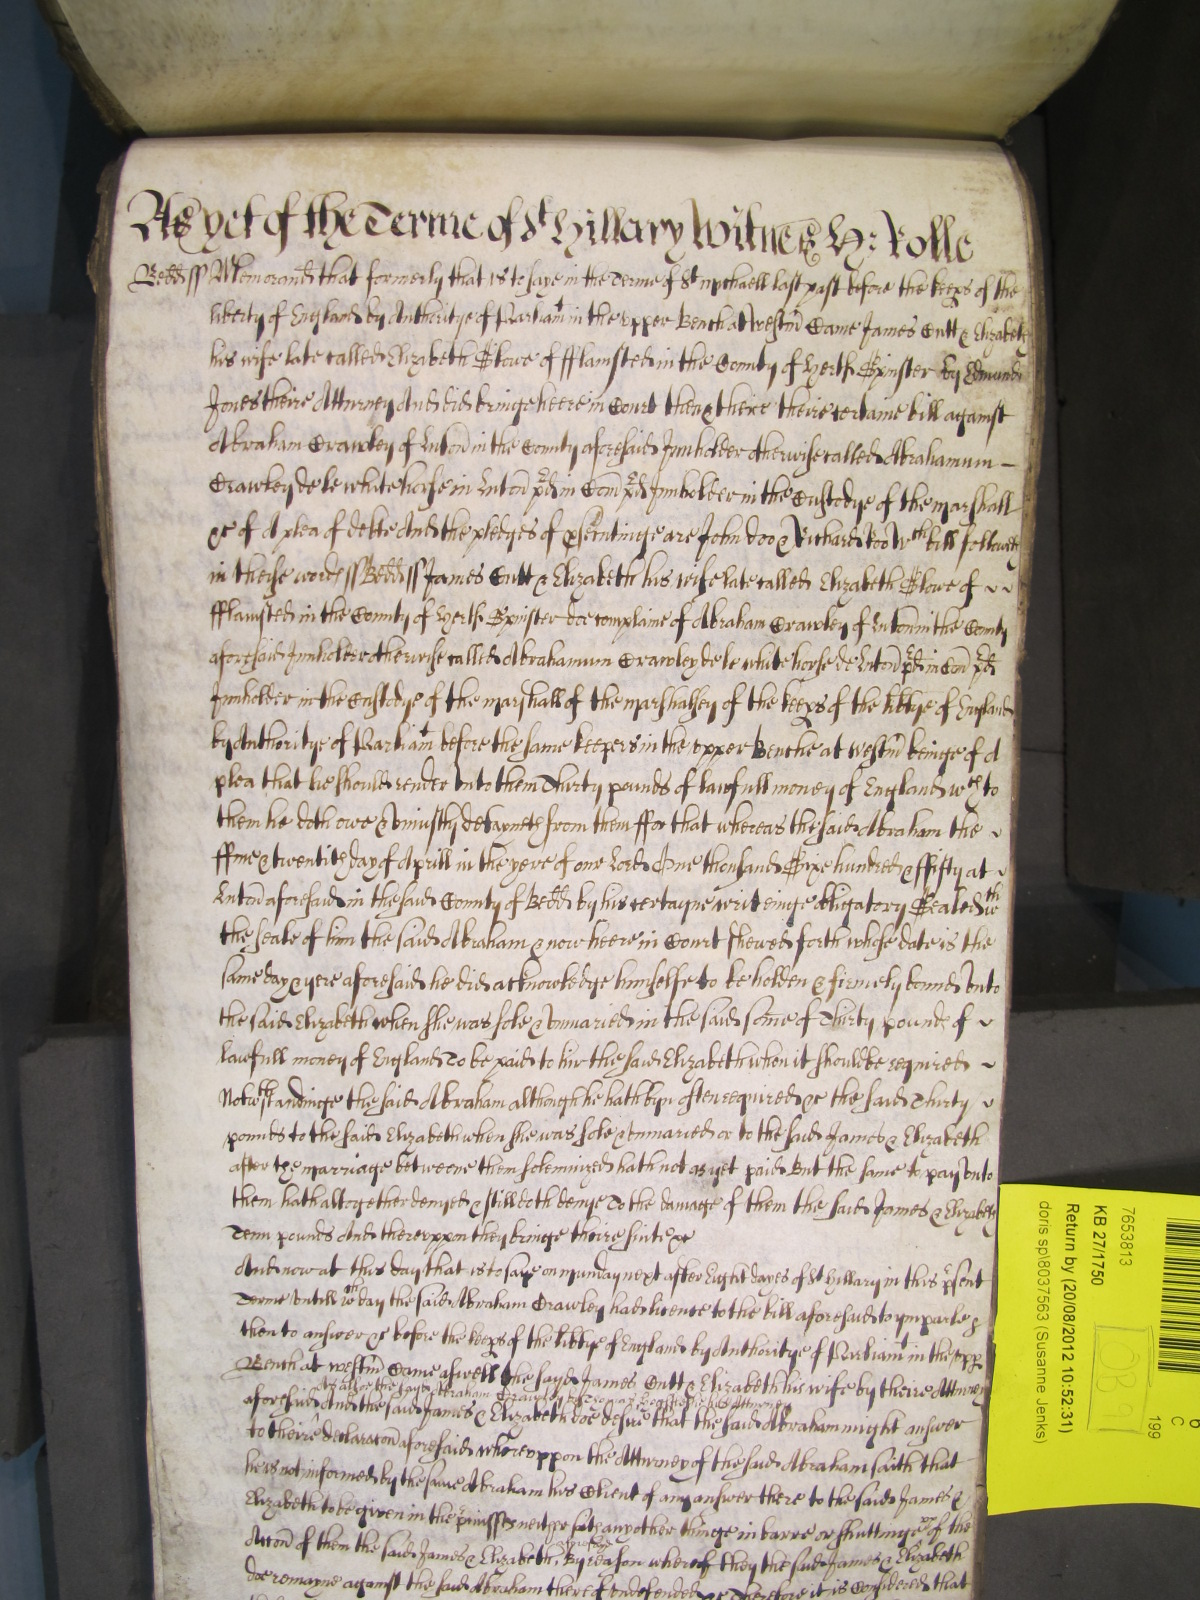 As yet of the Terme of St Hillary Witnes H: Rolle
Bedd ss Memorand that formerly that is to saye in the Terme of St Michaell last past before the keeps of the
liberty of England by Authoritye of Parliamt in the upper Bench at Westm Came James Cutt & Elizabeth
his wife late called Elizabeth Slowe of fflamsted in the County of Hertf Spinster by Edmund
Jones theire Atturney And did bringe heere in Court then & there theire certaine bill against
Abraham Crawley of Luton in the County aforesaid Innholder otherwise called Abrahamum
Crawley de le white horse in Luton pd in Com pd Innholder in the Custodye of the marshall
&c of A plea of debte And the pledges of psecutinge are John doo & Richard Roo Wch bill followeth
in theise wordes ss Bedd ss James Cutt & Elizabeth his wife late called Elizabeth Slowe of
fflamsted in the County of Hertf Spinster doe complaine of Abraham Crawley of Luton in the County
aforesaid Innholder otherwise called Abrahamum Crawley de le white horse de Luton pd in Com pd
Innholder in the Custodye of the marshall of the marshalsey of the keeps of the libtye of England
by Authoritye of Parliamt before the same keepers in the upper Benche at Westm beinge of A
plea that he should render unto them Thirty pounds of lawfull money of England wch to
them he doth owe & uniustly detayneth from them ffor that whereas the said Abraham the
ffive & twentith day of Aprill in the yere of our Lord One thousand Sixe hundred & ffifty at
Luton aforesaid in the said County of Bedd by his certayne writeinge obligatory Sealed wth
the seale of him the said Abraham & now heere in Court shewed forth whose date is the
same day & yere aforesaid he did acknowledge himselfe to be holden & firmely bound unto
the said Elizabeth when she was sole & unmaried in the said some of Thirty pounds of
lawfull money of England To be paid to hir the said Elizabeth when it should be required
Notwthstandinge the said Abraham although he hath byn often required &c the said Thirty
pounds to the said Elizabeth when she was sole & unmaried or to the said James & Elizabeth
after the marriage betweene them solemnized hath not as yet paid But the same to pay unto
them hath altogether denyed & still doth denye To the damage of them the said James & Elizabeth
Tenn pounds And thereuppon they bringe theire suite &c
And now at this day that is to saye on munday next after Eight dayes of St Hillary in this psent
Terme untill wch day the said Abraham Crawley had licence to the bill aforesaid to imparle &
then to answer &c before the keeps of the libtye of England by Authoritye of Parliamt in the upp
Bench at Westm Came aswell the sayd James Cutt & Elizabeth his wife by theire Atturney
As alsoe the sayd Abraham Crawley by his Atturney
aforesaid And the said James & Elizabeth doe desire that the said Abraham might answer
to theire declaracon aforesaid whereuppon the Atturney of the said Abraham saith that
he is not informed by the same Abraham his Client of any answer there to the said James &
Elizabeth to be given in the pmisses neither saith any other thinge in barre or of the
Accon of them the said James & Elizabeth aforesaid By reason whereof they the said James & Elizabeth
doe remayne against the said Abraham thereof undefended &c Therefore it is Considered that
7653813
KB 27/1750
Return by (20/08/2012 10:52:31)
doris sp\8037563 (Susanne Jenks)
199
C
6